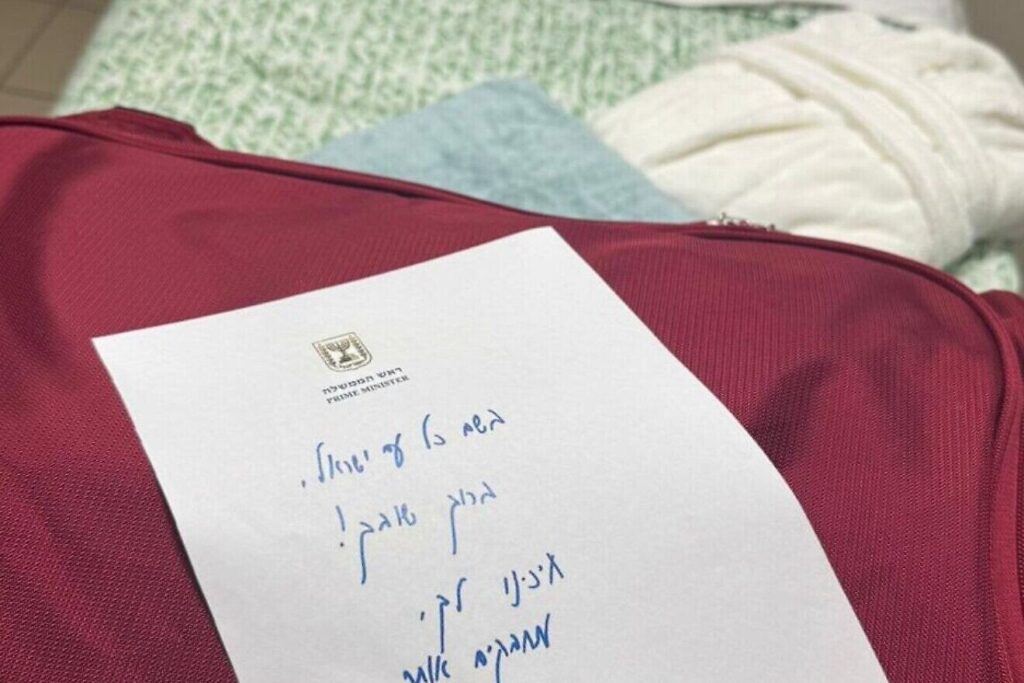 ראש הממשלה
PRIME MINISTER
בשם כל עם ישראל,
ברוך שובך!
חיכינו לך,
מחבקים אותך